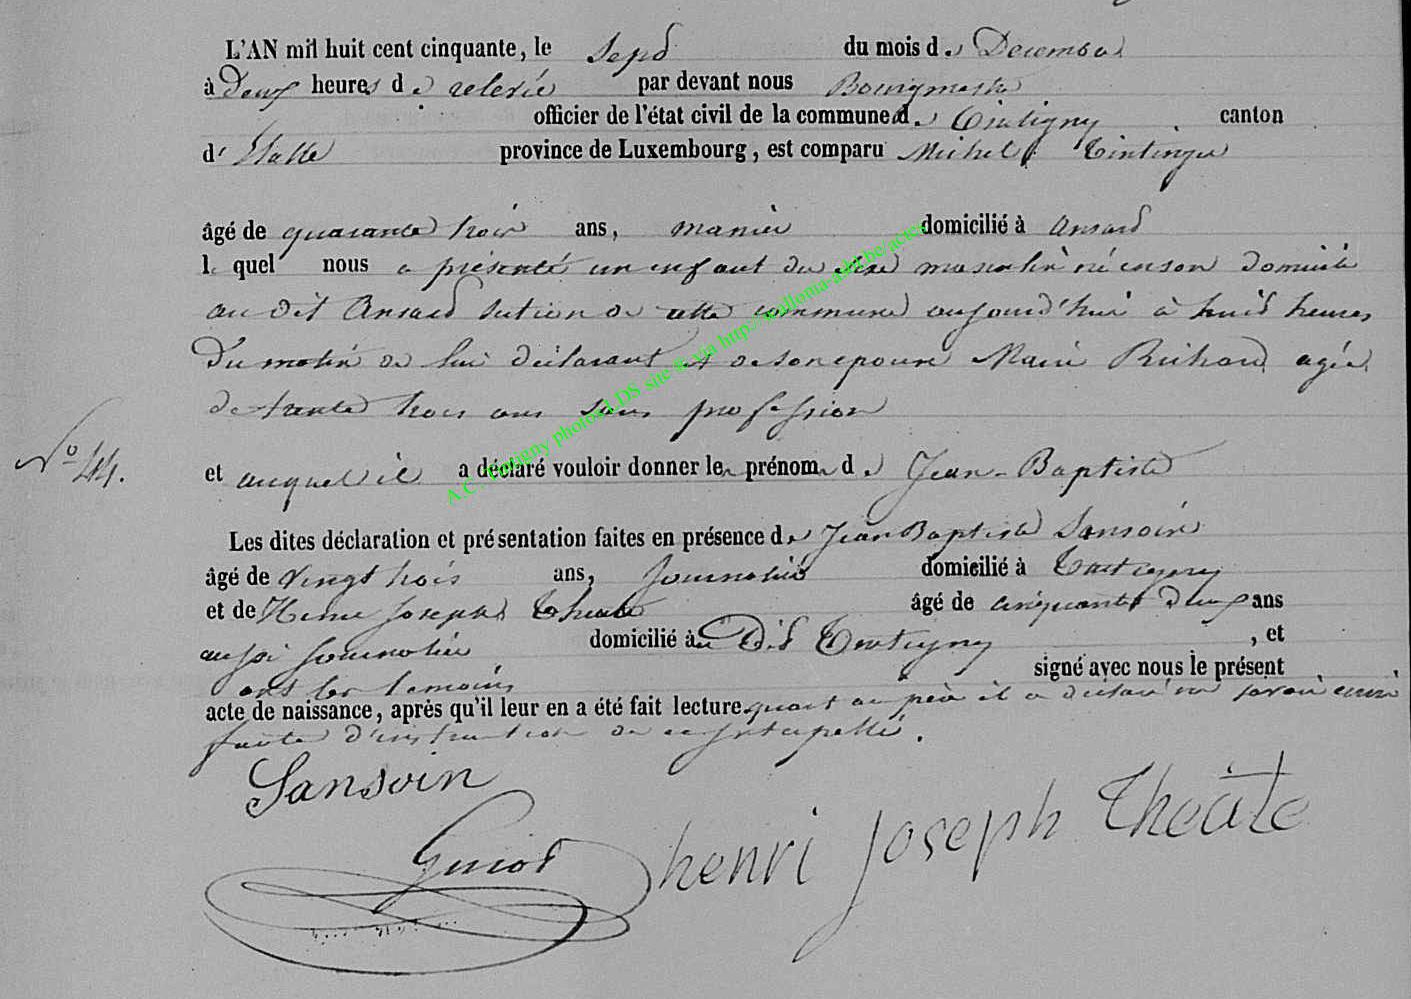 L'AN mil huit cent cinquante, le Sept du mois de Decembre
à Deux heures de relevée par devant nous Bourgmestre
officier de l'état civil de la commune de Tintigny canton
d'Etalle province de Luxembourg, est comparu Michel Tintinger
âgé de quarante trois ans, domicilié à Ansart
lequel nous a présenté un enfant du sexe masculin né en son domicile
au dit Ansart section de cette commune aujourd'hui à huit heures
Du matin de lui déclarant et de son epouse Marie Richard agée
de trente trois ans sans profession
N° 44.
et auquel il a déclaré vouloir donner les prénoms de Jean-Baptiste
Les dites déclaration et présentation faites en présence de Jean Baptiste Sansoin
âgé de vingt trois ans, journalier domicilié à Tintigny
et de Henri Joseph Théate âgé de cinquante deux ans
aussi journalier domicilié au Dit Tintigny, et
ont les temoins signé avec nous le présent
acte de naissance, après qu'il leur en a été fait lecture quant au père il a declaré ne savoir ecrire
faute d'instruction de ce interpellé.
Sansoin
Guiot
henri joseph theâte
A.C. Tintigny photos LDS site & via http://wallonia-asbl.be/actes